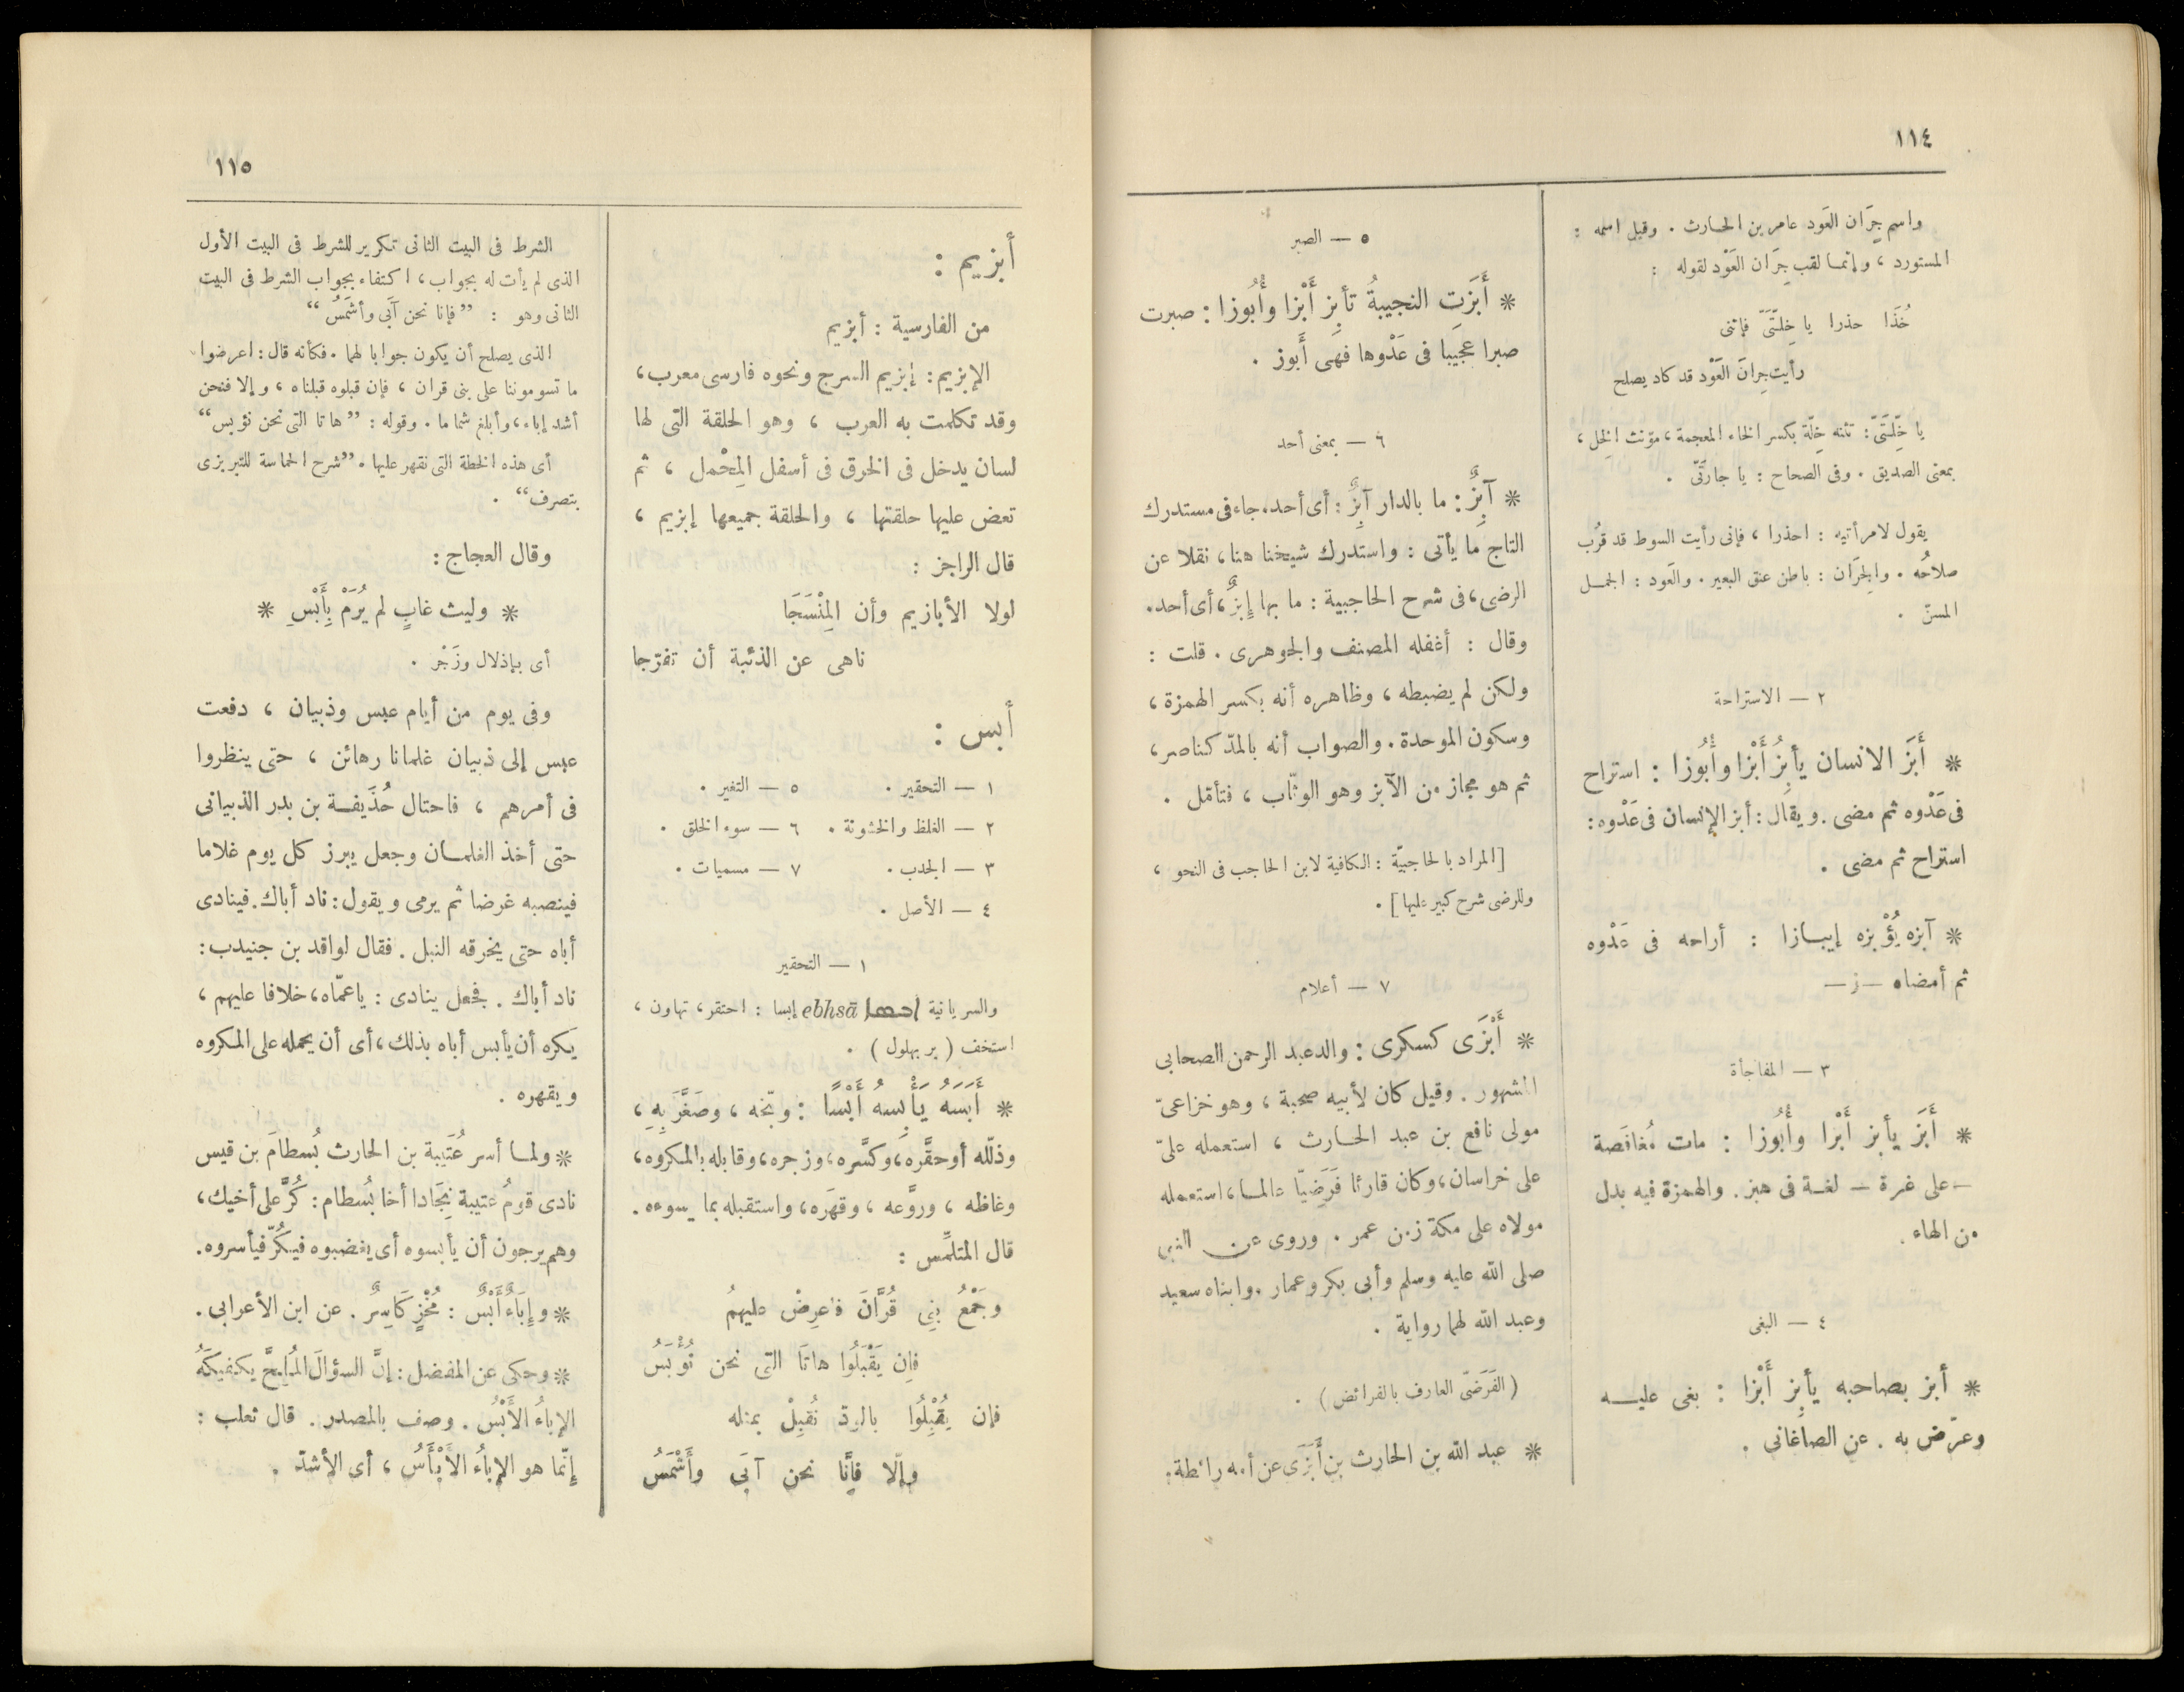 ١١٤
واسم جِرَان العَود عامر بن الحارث . وقيل اسمه :
المستورد ، وإنما لقب جِرَان العَوْد لقوله :
خُذَا حذرا يا خِلّتَىّ فإننى
رأيت جِرانَ العَوْد قد كاد يصلح
يا خِلّتَىّ : تثنه خِلّة بكسر الخاء المعجمة ، مؤنث الخِل ،
بمعنى الصديق . وفى الصحاح : يا جارَتَىّ .
يقول لامرأتيه : احذرا ، فإنى رأيت السوط قد قرُب
صلاحُه . والجِرَان : باطن عنق البعير . والعَود : الجمل
المسنّ .
٢ — الاستراحة
* أَبَزَ الانسان يأبِزُ أَبْزا وأُبُوزا : استراح
فى عَدْوه ثم مضى . ويقال : أبز الإنسان فى عَدْوه :
استراح ثم مضى .
* آبزه يُؤْبزه إيبازا : أراحه فى عَدْوه
ثم أمضاه — ز —
٣ — المفاجأة
* أَبَز يأبز أَبْزا وأُبُوزا : مات مُغافَصة
— على غرة — لغة فى هبز . والهمزة فيه بدل
من الهاء .
٤ — البغى
* أبز بصاحبه يأبِز أَبْزا : بغى عليه
وعرّض به . عن الصاغانى .
٥ — الصبر
* أَبَزَت النجيبةُ تأبِز أَبْزا وأُبُوزا : صبرت
صبرا عجيبا فى عَدْوها فهى أَبوز .
٦ — بمعنى أحد
* آبِزٌ : ما بالدار آبِزٌ : أى أحد . جاء فى مستدرك
التاج ما يأتى : واستدرك شيخنا هنا ، نقلا عن
الرضى ، فى شرح الحاجبية : ما بها إِبزٌ ، أى أحد .
وقال : أغفله المصنف والجوهرى . قلت :
ولكن لم يضبطه ، وظاهره أنه بكسر الهمزة ،
وسكون الموحدة . والصواب أنه بالمدّ كناصر ،
ثم هو مجاز من الآبز وهو الوثّاب ، فتأمّل .
[ المراد بالحاجبيّة : الكافية لابن الحاجب فى النحو ،
وللرضى شرح كبير عليها ] .
٧ — أعلام
* أَبْزَى كسكرى : والد عبد الرحمن الصحابى
المشهور . وقيل كان لأبيه صحبة ، وهو خزاعىّ
مولى نافع بن عبد الحارث ، استعمله علىّ
على خراسان ، وكان قارئا فَرَضِيّا عالما ، استعمله
مولاه على مكة زمن عمر . وروى عن النبى
صلى الله عليه وسلم وأبى بكر وعمار . وابناه سعيد
وعبد الله لهما رواية .
( الفَرَضىّ العارف بالفرائض ) .
* عبد الله بن الحارث بن أَبْزَى عن أمه رائطة .
١١٥
أبزيم :
من الفارسية : أبزيم
الإبزيم : إبزيم السرج ونحوه فارسى معرب ،
وقد تكلمت به العرب ، وهو الحلقة التى لها
لسان يدخل فى الخرق فى أسفل المِحْمل ، ثم
تعض عليها حلقتها ، والحلقة جميعها إبزيم ،
قال الراجز :
لولا الأبازيم وأن المِنْسَجَا
ناهى عن الذئبة أن تفرّجا
أبس :
١ — التحقير .
٢ — الغلظ والخشونة .
٣ — الجدب .
٤ — الأصل .
٥ — التغير .
٦ — سوء الخلق .
٧ — مسميات .
١ — التحقير
والسريانية ebhsā إبسا : احتقر ، تهاون ،
استخف ( بر بهلول ) .
* أَبَسَهُ يَأْبِسهُ أَبْسًا : وبّخه ، وصَغَّرَ بِهِ ،
وذلّله أو حقَّره ، وكسَّره ، وزجره ، وقابله بالمكروه ،
وغاظه ، وروَّعه ، وقهَره ، واستقبله بما يسوءه .
قال المتلمِّس :
وجَمْعُ بنِى قُرَّانَ فاعرِضْ عليهمُ
فإن يَقْبَلُوا هاتَا التى نحن نُؤْبَسُ
فإن يُقْبِلُوا بالودّ نُقبِلْ بمثله
وإلّا فإنَّا نحن آبَى وأَشْمَسُ
الشرط فى البيت الثانى تكرير للشرط فى البيت الأول
الذى لم يأت له بجواب ، اكتفاء بجواب الشرط فى البيت
الثانى وهو : ” فإنا نحن آبَى وأشمَسُ “
الذى يصلح أن يكون جوابا لهما . فكأنه قال : اعرضوا
ما تسوموننا على بنى قران ، فإن قبلوه قبلناه ، وإلا فنحن
أشد إباء ، وأبلغ شماما . وقوله : ” هاتا التى نحن نؤبس “
أى هذه الخطة التى نقهر عليها . ” شرح الحماسة للتبريزى
بتصرف “ .
وقال العجاج :
* وليث غابٍ لم يُرَمْ بِأَبْسِ *
أى بإذلال وزَجْر .
وفى يوم من أيام عبس وذبيان ، دفعت
عبس إلى ذبيان غلمانا رهائن ، حتى ينظروا
فى أمرهم ، فاحتال حُذَيفة بن بدر الذبيانى
حتى أخذ الغلمان وجعل يبرز كل يوم غلاما
فينصبه غرضا ثم يرمى ويقول : ناد أباك . فينادى
أباه حتى يخرقه النبل . فقال لواقد بن جنيدب :
ناد أباك . فجعل ينادى : يا عمّاه ، خلافا عليهم ،
يَكره أن يأبس أباه بذلك ، أى أن يحمله على المكروه
ويقهره .
* ولما أسر عُتَيبة بن الحارث بُسطامَ بن قيس
نادى قومُ عتيبة نِجَادا أخا بُسطام : كُرَّ على أخيك ،
وهم يرجون أن يأبسوه أى يغضبوه فيكُرّ فيأسروه .
* وإِبَاءٌ أَبْسٌ : مُخْزٍ كَاسِرٌ . عن ابن الأعرابى .
* وحكى عن المفضل : إنَّ السؤالَ المُلِحَّ يكفيكَهُ
الإباءُ الأَبْسُ . وصف بالمصدر . قال ثعلب :
إنّما هو الإِباءُ الأَبْأَسُ ، أى الأشدّ .